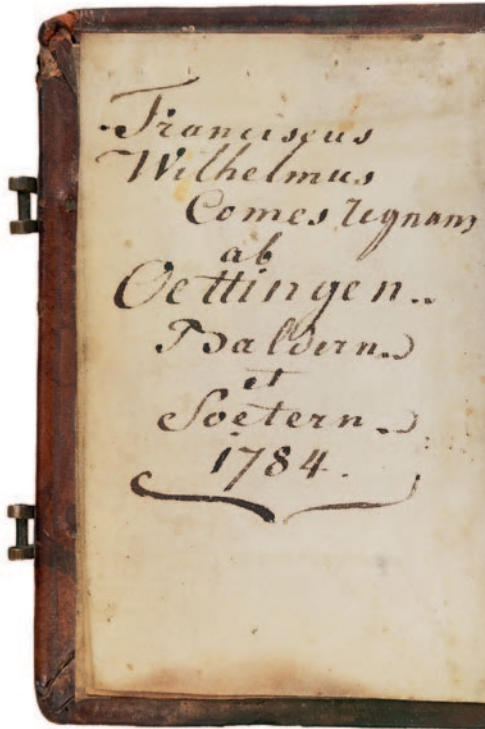 Franciscus
Wilhelmus
Comes regnans
ab
Oettingen..
Baldern..
et
Soetern..
1784.